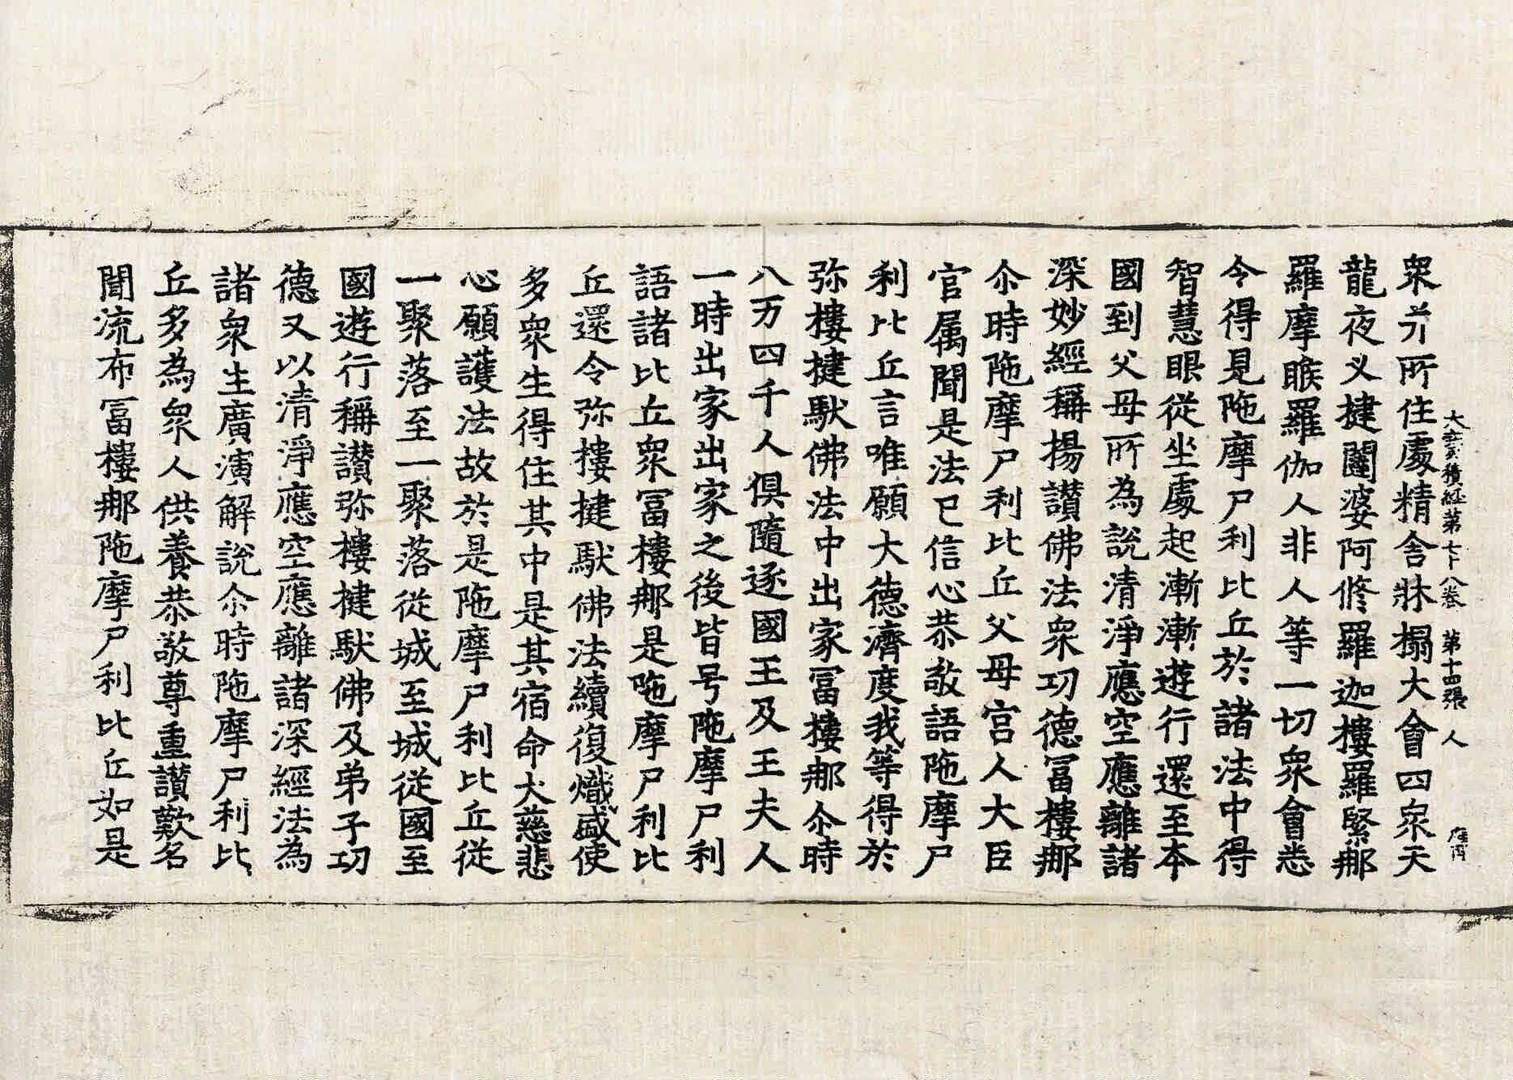 大寶積經第七十八卷 第十四張 人
衆亣所住處精舍牀榻大會四衆天
龍夜叉揵闥婆阿修羅迦樓羅緊那
羅摩睺羅伽人非人等一切衆會悉
令得見陁摩尸利比丘於諸法中得
智慧眼從坐處起漸漸遊行還至本
國到父母所為說清淨應空應離諸
深妙經稱揚讃佛法衆功德冨樓那
尒時陁摩尸利比丘父母宫人大臣
官属聞是法已信心恭敬語陁摩尸
利比丘言唯願大德濟度我等得於
弥樓揵馱佛法中出家冨樓那尒時
八万四千人俱隨逐國王及王夫人
一時出家出家之後皆号陁摩尸利
語諸比丘衆冨樓那是陁摩尸利比
丘還令弥樓揵馱佛法續復熾盛使
多衆生得住其中是其宿命大慈悲
心願護法故於是陁摩尸利比丘從
一聚落至一聚落從城至城從國至
國遊行稱讃弥樓揵馱佛及弟子功
德又以清淨應空應離諸深經法為
諸衆生廣演解說尒時陁摩尸利比
丘多為衆人供養恭敬尊重讃歎名
聞流布冨樓那陁摩尸利比丘如是